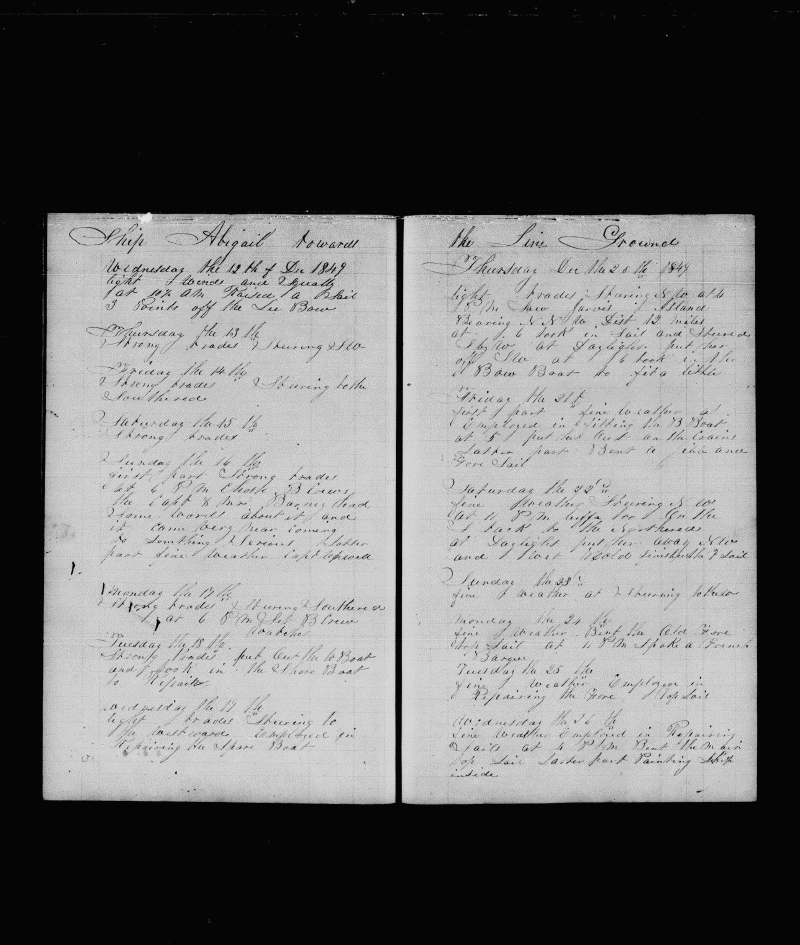 Ship Abigail towards
Wednesday the 12th of Dec 1849
light winds and Squally
at 10½ AM Raised a Sail
3 Points off the Lee Bow
Thursday the 13 th
Strong trades Steering SW
Friday the 14 th
Strong trades Steering to the
Southered
Saturday the 15 th
Strong trades
Sunday the 16 th
first part Strong trades
at 6 P M Chose B Crews
the Capt & Mr Barnes had
Some words about it and
it came very near coming
to Somthing Serious latter
part fine weather Capt
Monday the 17 th
Strong trades Steering Southered
at 6 P M Set B Crew
watches
Tuesday the 18 th
Strong trades put out the W Boat
and took in the Spare Boat
to Repair
Wednesday the 19 th
light trades Steering to
the westward Employed in
Repairing the Spare Boat
the Line Ground
Thursday Dec the 20 th 1849
light trades Steering N W at 4
P M Saw Jarvis Island
Bearing N N W Dist 12 miles
at 6 took in Sail and Steered
S by W at Daylight put her
off SW at 6 took in the
Bow Boat to fit a little
Friday the 21st
first part fine weather
Employed in fitting the B Boat
at 5 put her out on the Cranes
Latter part Bent a jibb and
Fore Sail
Saturday the 22
fine weather Steering N W
at 4 P M luffd for on the
tack to the Northered
at Daylight put her away N W
and finished the Sail
Sunday the 23
fine weather Steering to the W
Monday the 24 th
fine weather Bent the Old Fore
top Sail at 4 P M Spoke a French
Barque
Tuesday the 25 th
fine weather Employed in
Repairing the Fore Top Sail
Wednesday the 26 th
fine weather Employed in Repairing
Sails at 4 P M Bent the Main
top Sail Latter part Painting Ship
inside